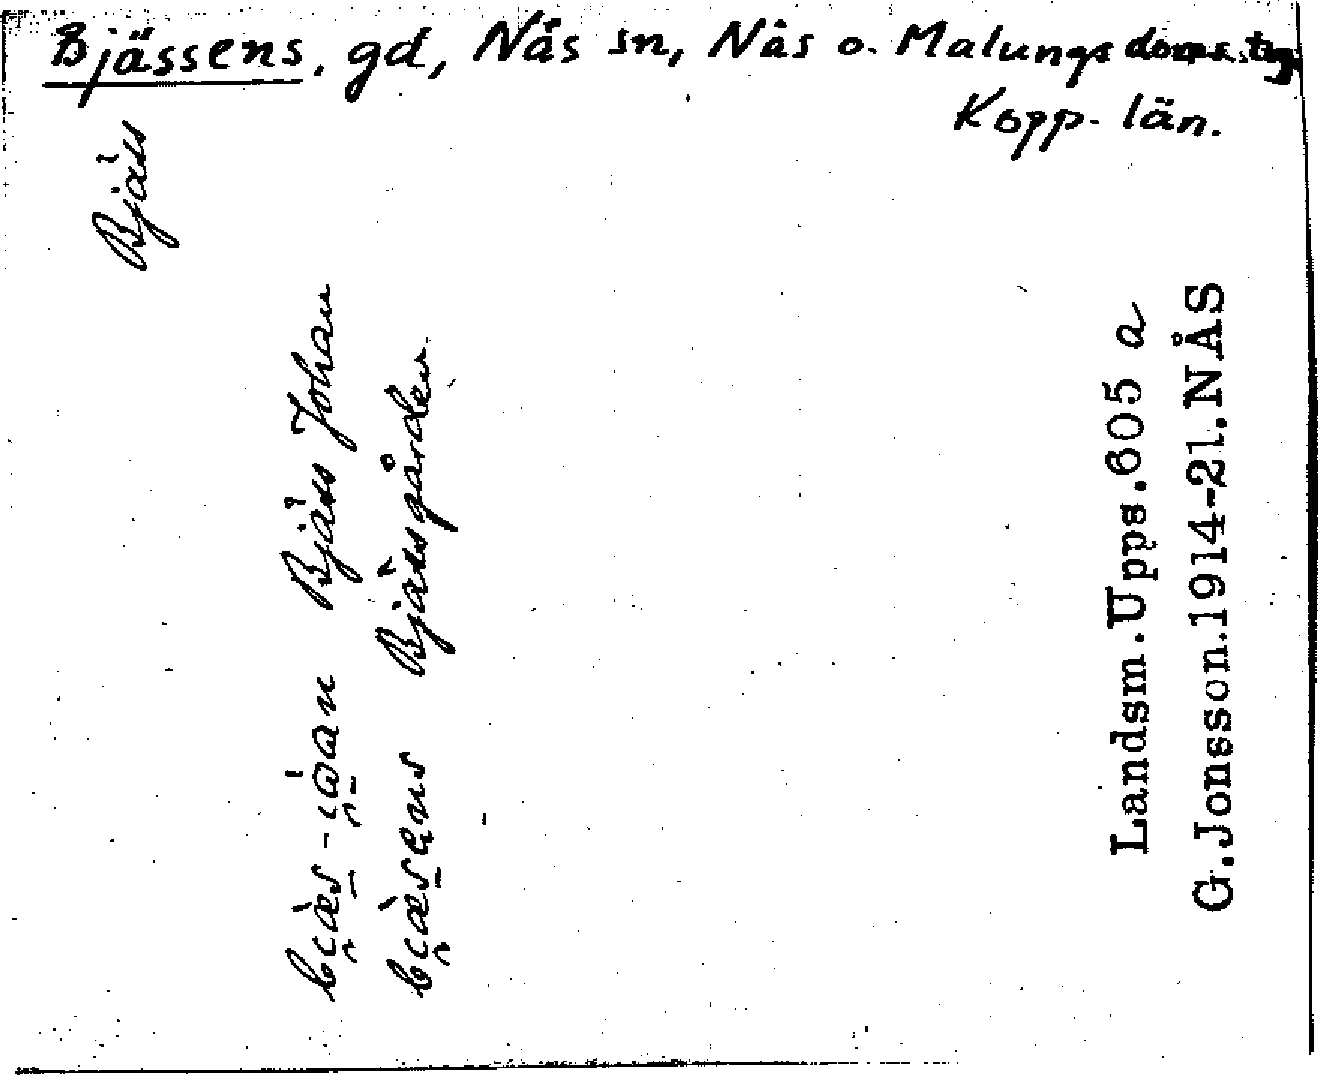 Bjässens, gd, Nås sn, Nås o. Malungs doms. tg.
Kopp. län.
Bjäss
Bjäss Johan
Bjässgården
Landsm.Upps.605 a
G.Jonsson.1914-21.NÅS